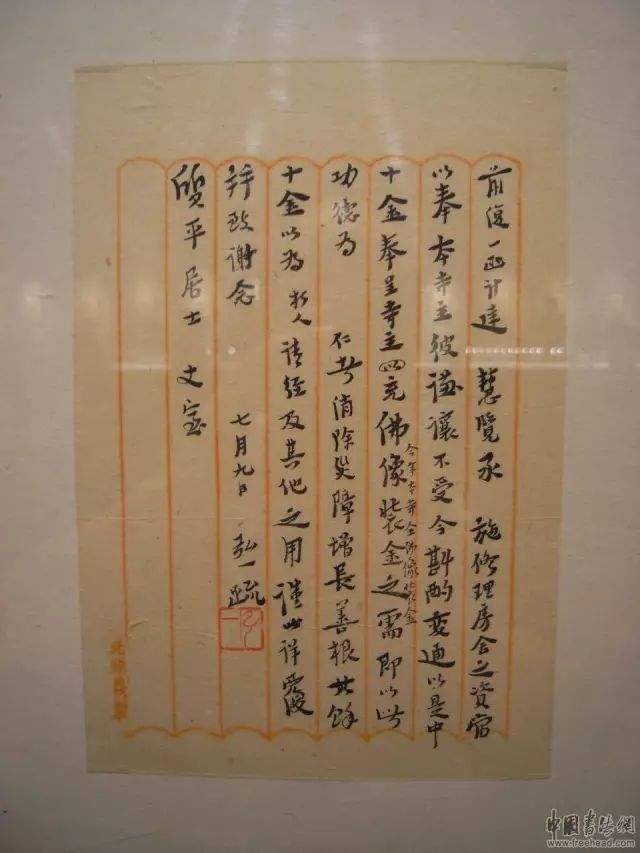 前復一函計達 慧覽承 施修理房舍之資宿
以奉本寺主彼謙讓不受今斟酌變通以是中
十金奉呈寺主以充佛像裝金之需即以此
今年本寺全佛像裝金
功德為 仁者消除災障增長善根其餘
十金以為 朽人請經及其他之用謹此詳覆
并致謝念
七月九日 弘一疏
質平居士 丈室
中國書法網
www.freehead.com